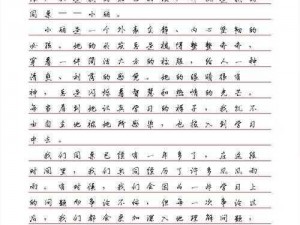 同桌——小丽。
小丽是一个外柔内刚，内心坚韧的
女孩。她的头发总是梳得整整齐齐，
穿着一件简洁大方的校服，给人一种
清爽、利落的感觉。她的眼睛很有
神，总是闪烁着智慧和热情的光芒。
每当看到她认真学习的样子，我就不
由自主地被她所感染，也投入到学习
中去。
我们同桌已经有一年多了，在这段
时间里，我们共同经历了许多风风雨
雨。有时候，我们会因为一些学习上
的问题而争论不休，但每一次争论过
后，我们都会更加深入地理解问题，